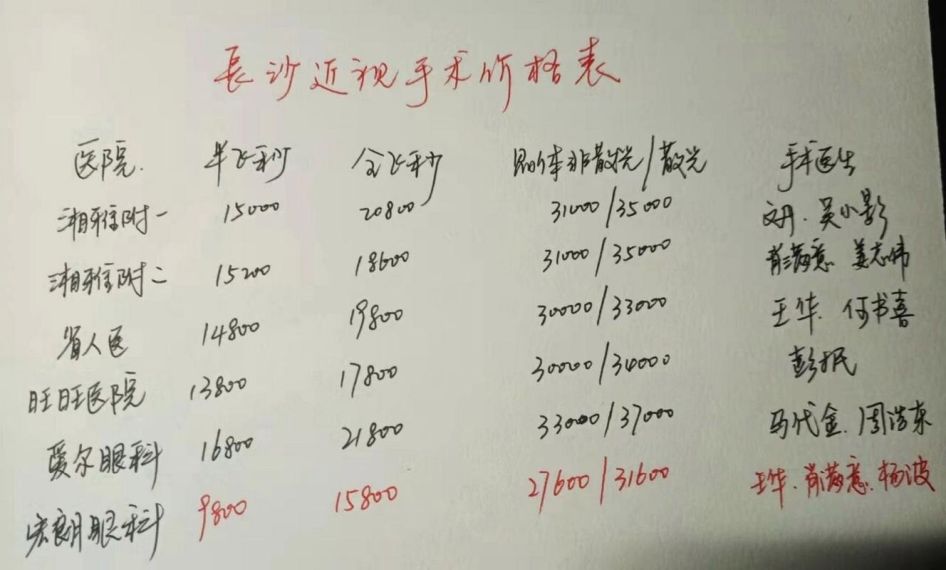 长沙近视手术价格表
医院 半飞秒 全飞秒 晶体非散光/散光 手术医生
湘雅附一 15000 20800 31000/35000 文丹、吴小影
湘雅附二 15200 18600 31000/35000 肖满意 姜志伟
省人医 14800 19800 30000/33000 王华、何书喜
旺旺医院 13800 17800 30000/34000 彭抿
爱尔眼科 16800 21800 33000/37000 马代金、周浩东
宏朗眼科 9800 15800 27600/31600 王华、肖满意、杨波